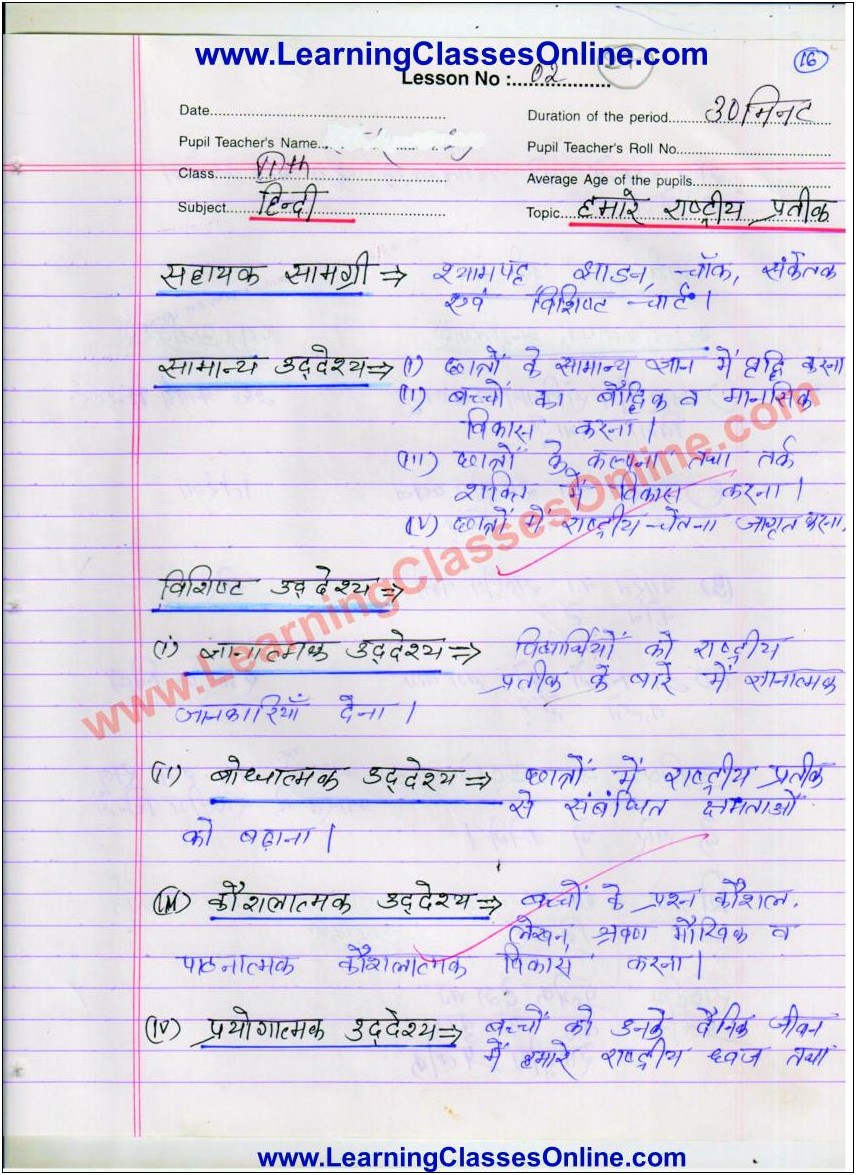 www.LearningClassesOnline.com
16
Lesson No :....02....
Date
Duration of the period....30 मिनट
Pupil Teacher's Name
Pupil Teacher's Roll No.
Class.... VIth
Average Age of the pupils
Subject.... हिन्दी
Topic.... हमारे राष्ट्रीय प्रतीक
सहायक सामग्री ⇒ श्यामपट्ट झाडन, चॉक, संकेतक
एवं विशिष्ट चार्ट।
सामान्य उद्देश्य ⇒ (i) छात्रों के सामान्य ज्ञान में वृद्धि करना
(ii) बच्चों का बौद्धिक व मानसिक
विकास करना।
(iii) छात्रों के कल्पना तथा तर्क
शक्ति में विकास करना।
(iv) छात्रों में राष्ट्रीय-चेतना जागृत करना.
विशिष्ट उद्देश्य ⇒
(i) ज्ञानात्मक उद्देश्य ⇒ विद्यार्थियों को राष्ट्रीय
प्रतीक के बारे में ज्ञानात्मक
जानकारियाँ देना।
(ii) बोधात्मक उद्देश्य ⇒ छात्रों में राष्ट्रीय प्रतीक
से संबंधित क्षमताओं
को बढ़ाना।
(iii) कौशलात्मक उद्देश्य ⇒ बच्चों के प्रश्न कौशल,
लेखन, श्रवण मौखिक व
पाठनात्मक कौशलात्मक विकास करना।
(iv) प्रयोगात्मक उद्देश्य ⇒ बच्चों को उनके दैनिक जीवन
में हमारे राष्ट्रीय ध्वज तथा
www.LearningClassesOnline.com
www.LearningClassesOnline.com